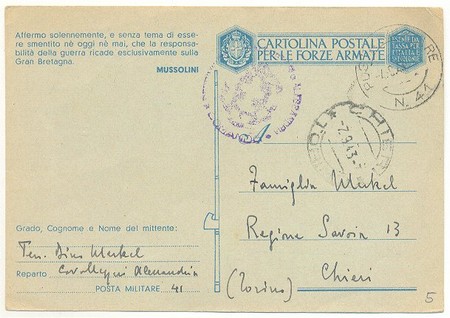 Affermo solennemente, e senza tema di esse-
re smentito nè oggi nè mai, che la responsa-
bilità della guerra ricade esclusivamente sulla
Gran Bretagna.
MUSSOLINI
CARTOLINA POSTALE
PER LE FORZE ARMATE
ESENTE DA
TASSA PER
L'ITALIA E
N. 41
CHIERI
-2.9.43-
Famiglia Merkel
Regione Savoia 13
Chieri
(Torino)
Grado, Cognome e Nome del mittente:
Ten. Dino Merkel
Reparto Alessandria
POSTA MILITARE 41
5